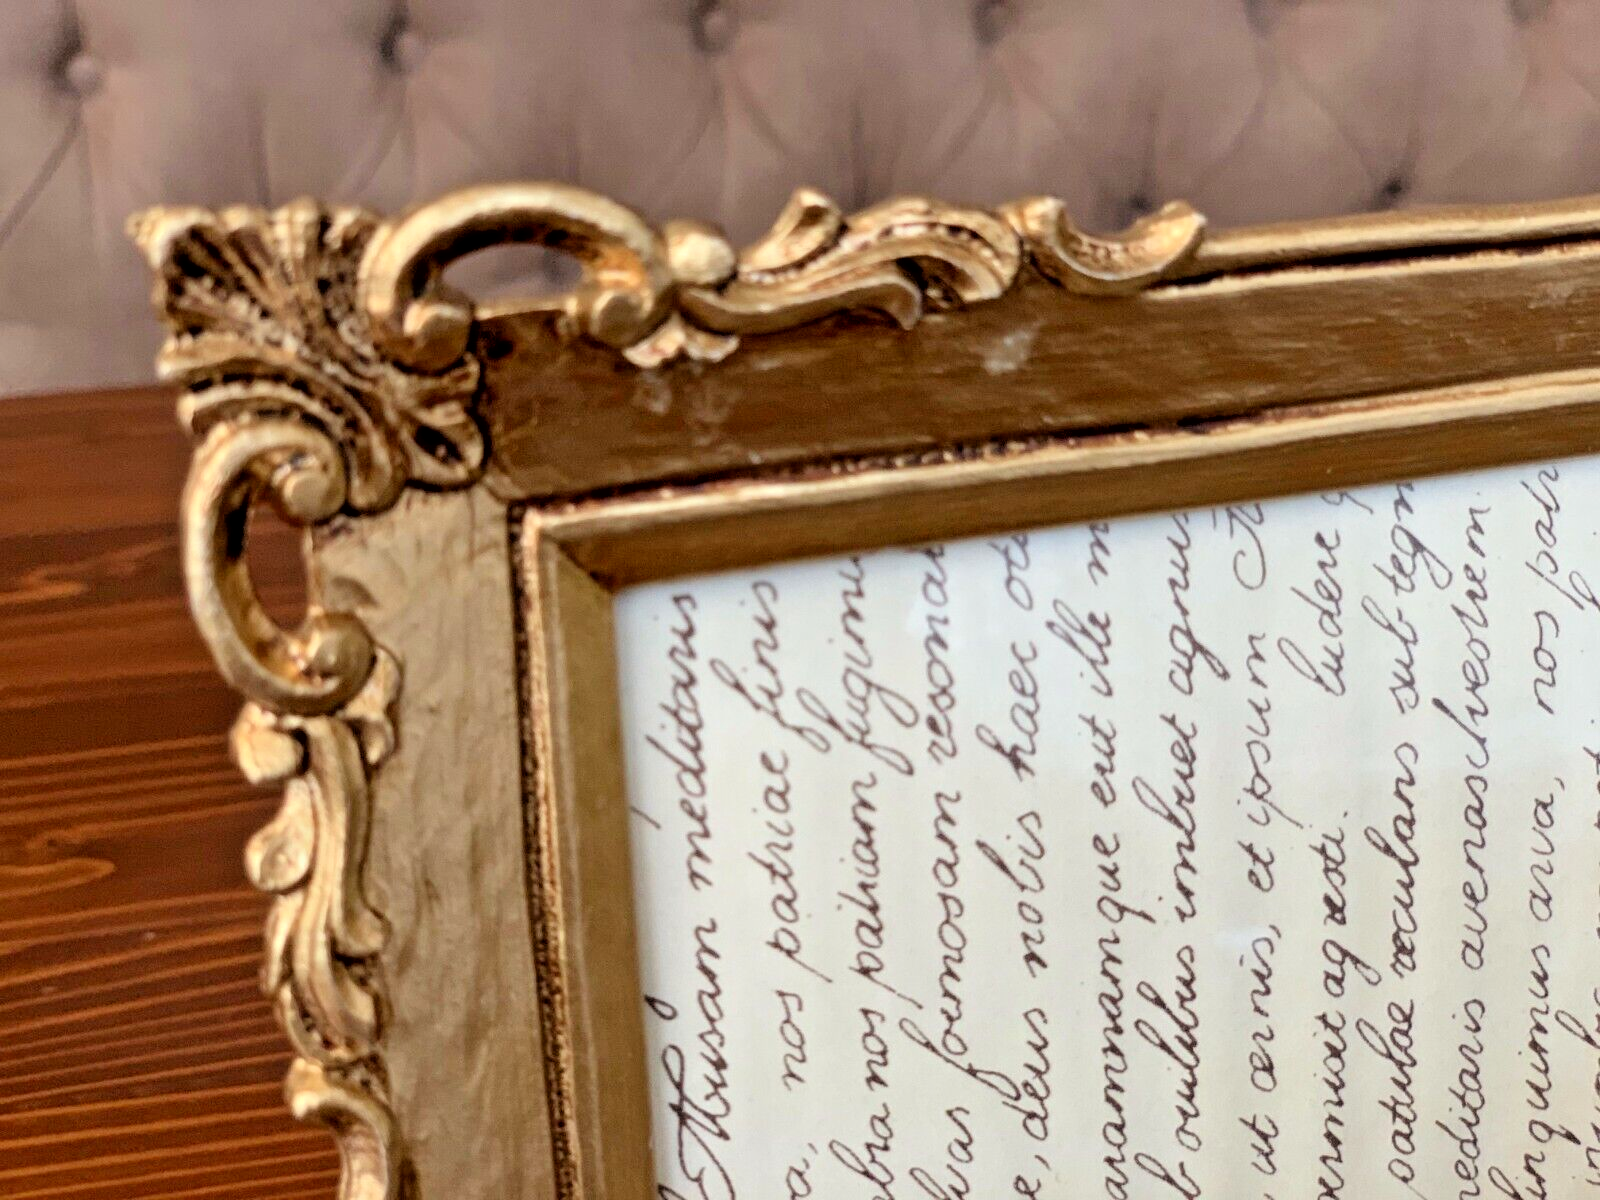 Musam meditaris
va, nos patriae finis
mbra nos patriam fugimu
lvas formosam resonar
e, deus nobis haec oti
aramnamque erit ille m
b ovilibus imbuet agnus
ut cernis, et ipsum
permisit agresti. ludere q
patulae recubans sub tegm
meditaris avenas lvestrem.
linquimus arva, nos patr